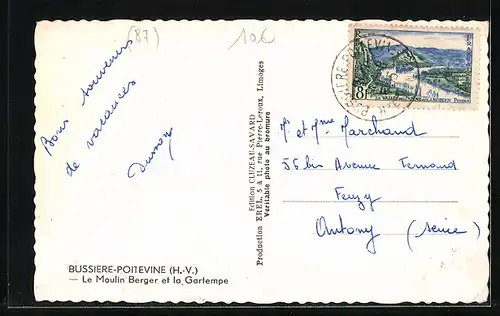 (87)
10€
Bons souvenirs
de vacances
BUSSIERE-POITEVINE (H.-V.)
— Le Moulin Berger et la Gartempe
Edition CLUZEAU-SAVARD
Production EREL, 5 à 11, rue Pierre-Leroux, Limoges
Véritable photo au bromure
8F
Mr et Mme Marchand
56 bis Avenue Fernand
Antony (Seine)